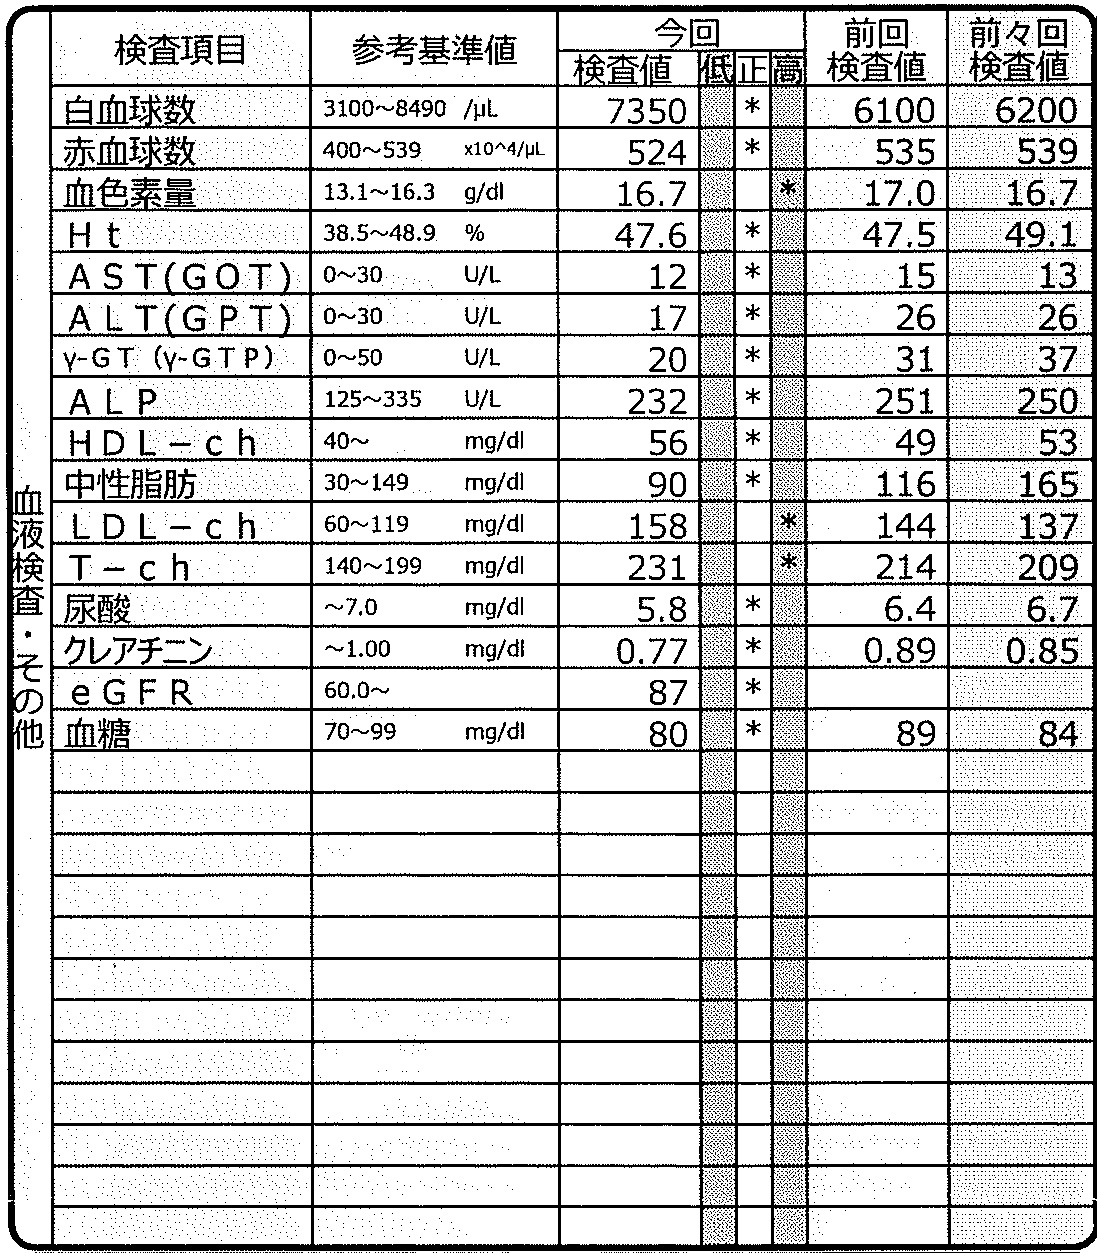 検査項目 参考基準値 今回 前回 前々回
検査値 低 正 高 検査値 検査値
白血球数 3100～8490 /μL 7350 * 6100 6200
赤血球数 400～539 x10^4/μL 524 * 535 539
血色素量 13.1～16.3 g/dl 16.7 * 17.0 16.7
Ht 38.5～48.9 % 47.6 * 47.5 49.1
AST(GOT) 0～30 U/L 12 * 15 13
ALT(GPT) 0～30 U/L 17 * 26 26
γ-GT (γ-GTP) 0～50 U/L 20 * 31 37
ALP 125～335 U/L 232 * 251 250
HDL－ch 40～ mg/dl 56 * 49 53
中性脂肪 30～149 mg/dl 90 * 116 165
LDL－ch 60～119 mg/dl 158 * 144 137
T－ch 140～199 mg/dl 231 * 214 209
尿酸 ～7.0 mg/dl 5.8 * 6.4 6.7
クレアチニン ～1.00 mg/dl 0.77 * 0.89 0.85
eGFR 60.0～ 87 *
血糖 70～99 mg/dl 80 * 89 84
血液検査・その他